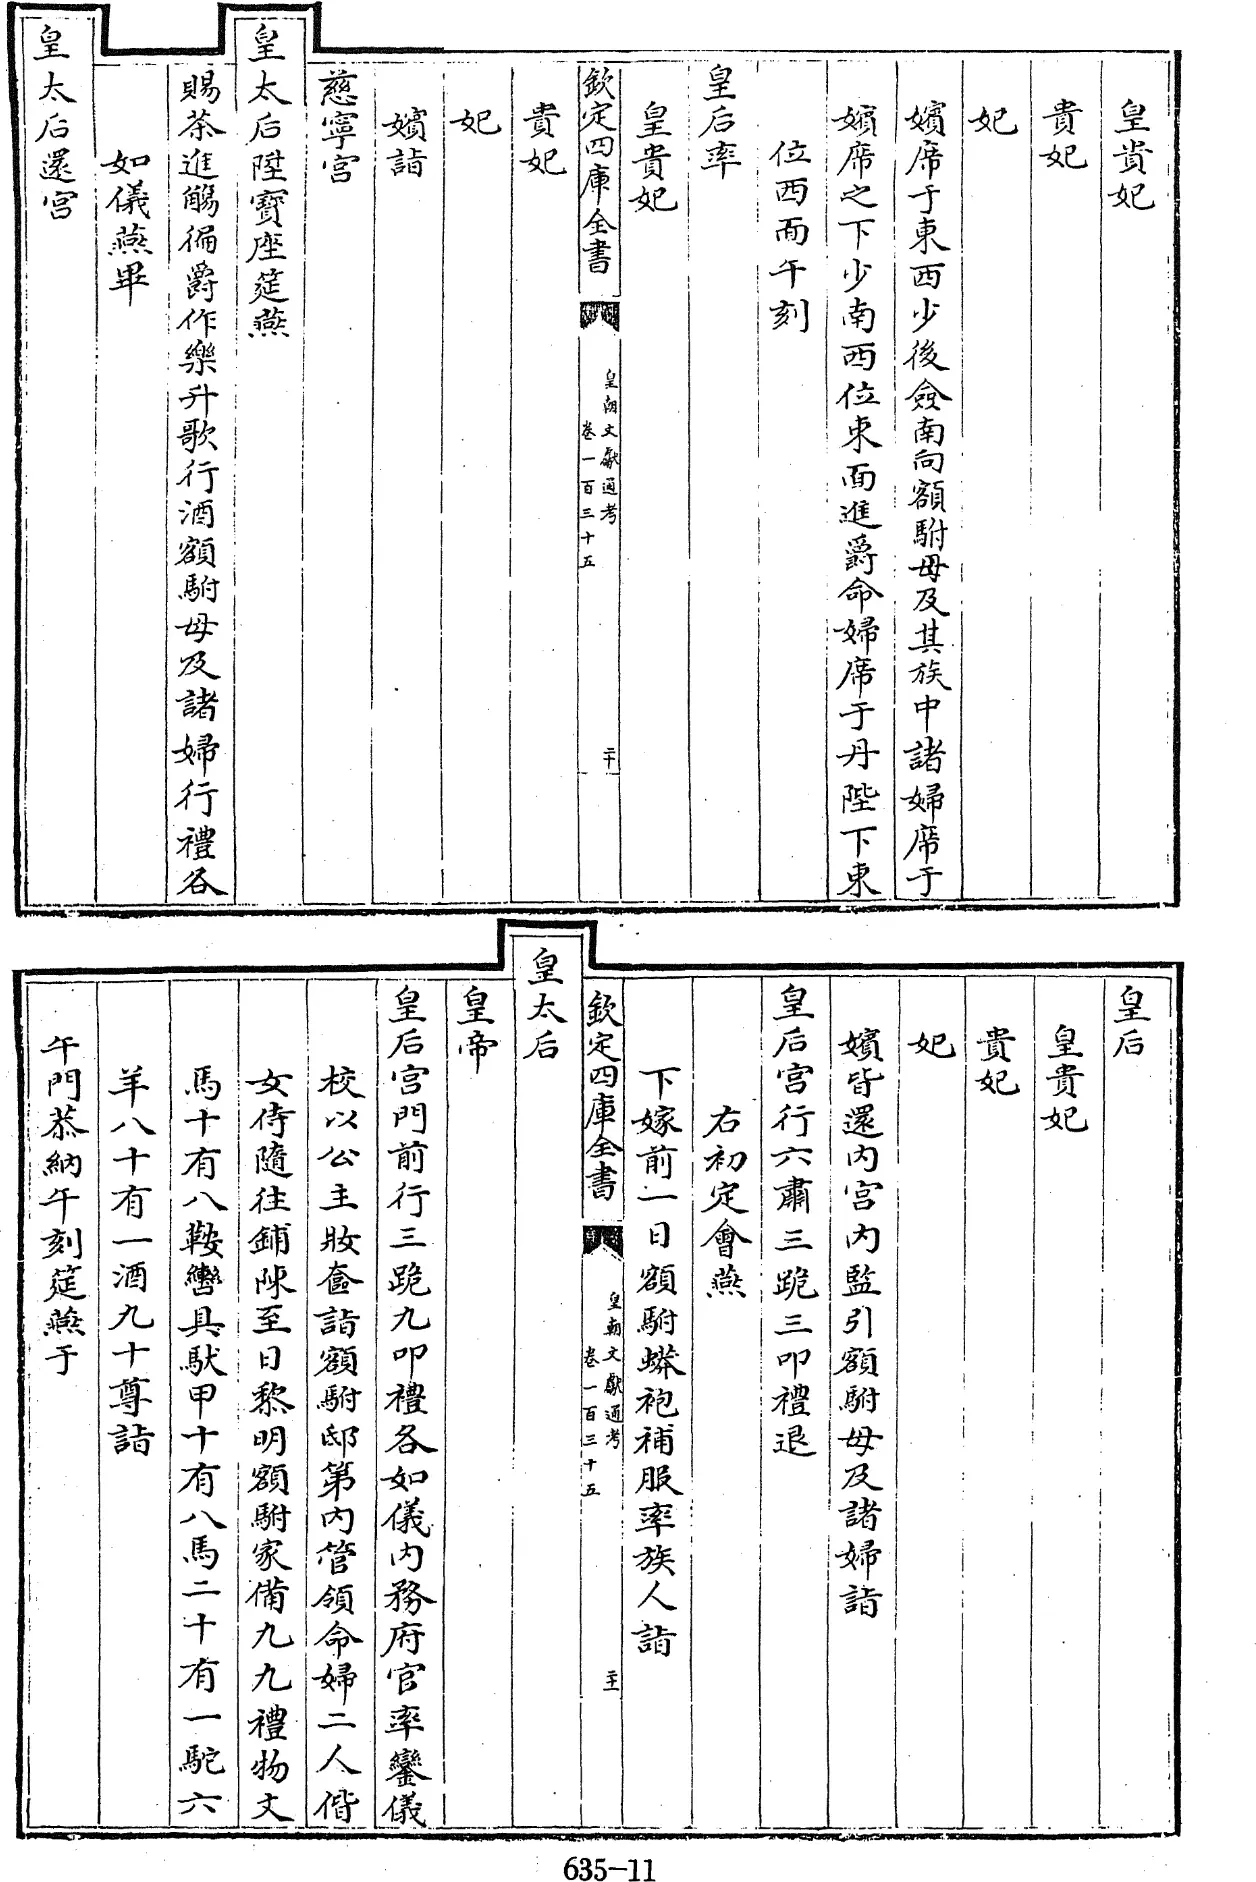 皇貴妃
貴妃
妃
嬪席于東西少後僉南向額駙母及其族中諸婦席于
嬪席之下少南西位東面進爵命婦席于丹陛下東
位西面午刻
皇后率
皇貴妃
欽定四庫全書
皇朝文獻通考
卷一百三十五
二十
貴妃
妃
嬪詣
慈寧宮
皇太后陞寶座筵燕
賜茶進觴徧爵作樂升歌行酒額駙母及諸婦行禮各
如儀燕畢
皇太后還宮
皇后
皇貴妃
貴妃
妃
嬪皆還內宮內監引額駙母及諸婦詣
皇后宮行六肅三跪三叩禮退
右初定會燕
下嫁前一日額駙蟒袍補服率族人詣
欽定四庫全書
皇朝文獻通考
卷一百三十五
二十一
皇太后
皇帝
皇后宮門前行三跪九叩禮各如儀內務府官率鑾儀
校以公主妝奩詣額駙邸第內管領命婦二人偕
女侍隨往鋪陳至日黎明額駙家備九九禮物文
馬十有八鞍轡具馱甲十有八馬二十有一駝六
羊八十有一酒九十尊詣
午門恭納午刻筵燕于
635-11